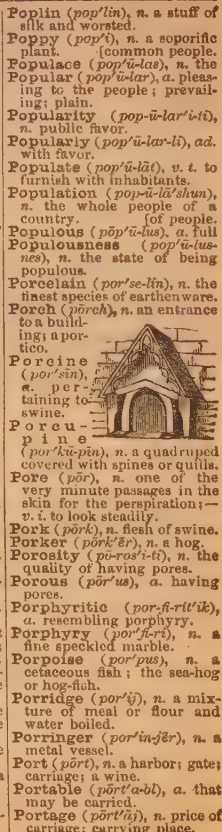 Poplin (pop'lin), n. a stuff of
silk and worsted.
Poppy (pop'i), n. a soporific
plant. [common people.
Populace (pop'ū-las), n. the
Popular (pop'ū-lar), a. pleas-
ing to the people; prevail-
ing; plain.
Popularity (pop-ū-lar'i-ti),
n. public favor.
Popularly (pop'ū-lar-li), ad.
with favor.
Populate (pop'ū-lāt), v. t. to
furnish with inhabitants.
Population (pop-ū-lā'shun),
n. the whole people of a
country. [of people.
Populous (pōp'ū-lus), a. full
Populousness (pop'ū-lus-
nes), n. the state of being
populous.
Porcelain (por'se-lin), n. the
finest species of earthenware.
Porch (pōrch), n. an entrance
to a build-
ing; a por-
tico.
Porcine
(por'sin),
a. per-
taining to
swine.
Porcu-
pine
(por'kū-pīn), n. a quadruped
covered with spines or quills.
Pore (pōr), n. one of the
very minute passages in the
skin for the perspiration;—
v. i. to look steadily.
Pork (pōrk), n. flesh of swine.
Porker (pōrk'ēr), n. a hog.
Porosity (pō-ros'i-ti), n. the
quality of having pores.
Porous (pōr'us), a. having
pores.
Porphyritic (por-fi-rit'ik),
a. resembling porphyry.
Porphyry (por'fi-ri), n. a
fine speckled marble.
Porpoise (por'pus), n. a
cetaceous fish; the sea-hog
or hog-fish.
Porridge (por'ij), n. a mix-
ture of meal or flour and
water boiled.
Porringer (por'in-jēr), n. a
metal vessel.
Port (pōrt), n. a harbor; gate;
carriage; a wine.
Portable (pōrt'a-bl), a. that
may be carried.
Portage (pōrt'āj), n. price of
carriage; carrying place.